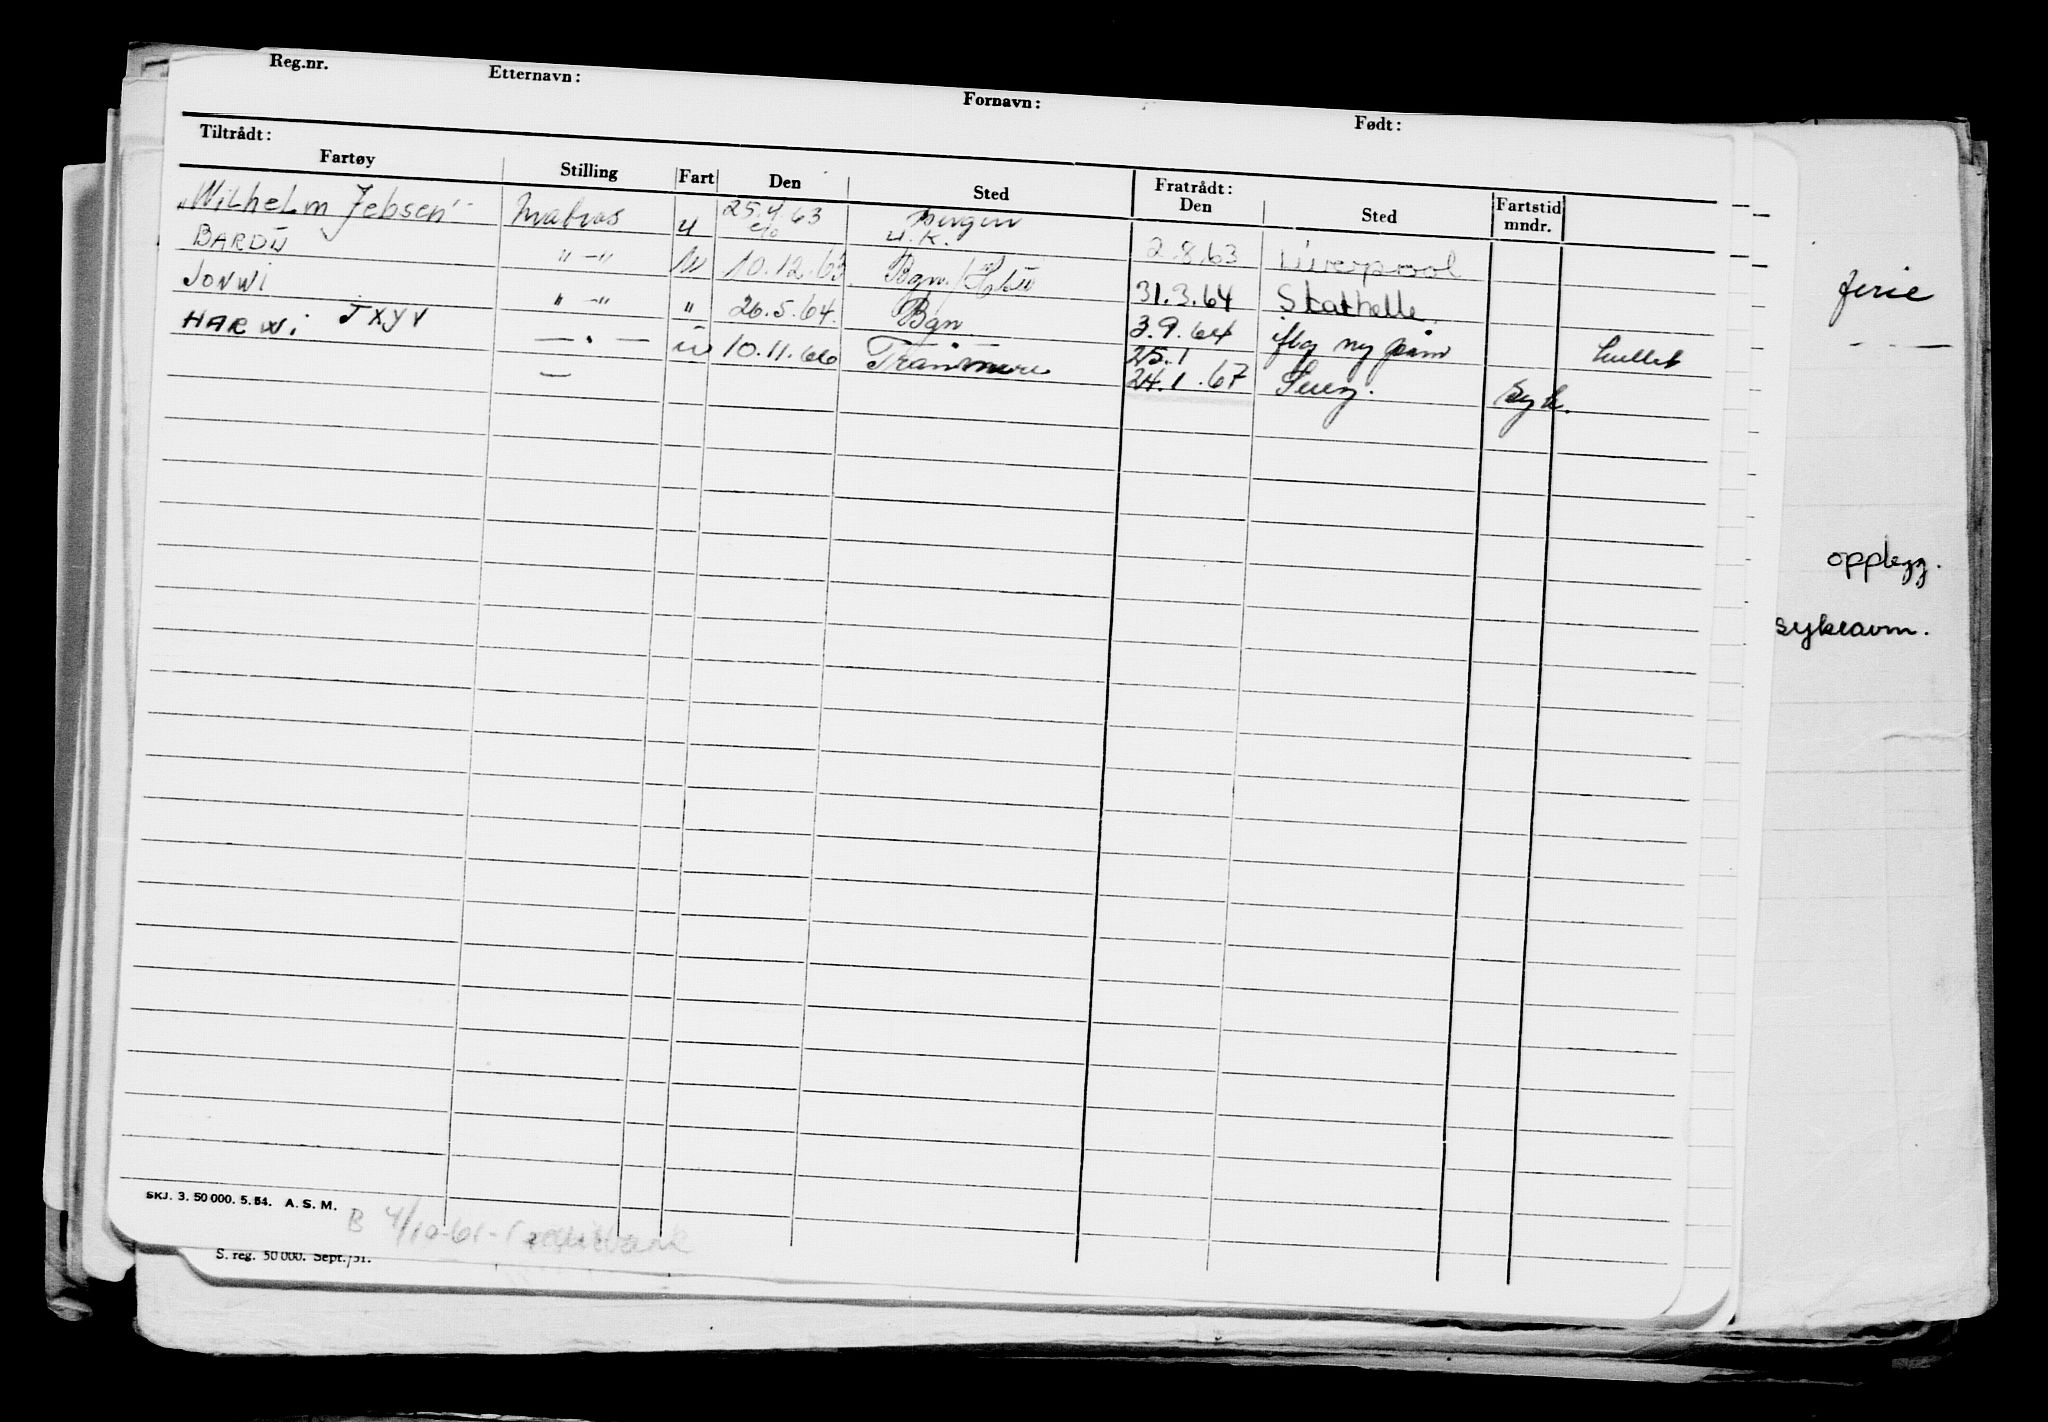 Reg.nr. Etternavn: Fornavn: Født:
Tiltrådt: Fratrådt:
Fartøy Stilling Fart Den Sted Den Sted Fartstid mndr.
"Wilhelm Jebsen" Matros u 25.4.63 Bergen
u.k. 2.8.63 Liverpool
BARDU " - " u 10.12.63 Bgn. 31.3.64 Stathelle.
JONWI " - " " 26.5.64. Bgn 3.9.64 iflg ny hullet
HARWI JXYV — . — u 10.11.66 Tranmere 25.1
— 24.1.67 Suez. syk.
ferie
opplegg.
sykeavm.
SKJ. 3. 50 000. 5. 54. A. S. M.
B 4/10-61 -
S. reg. 50 000. Sept./51.